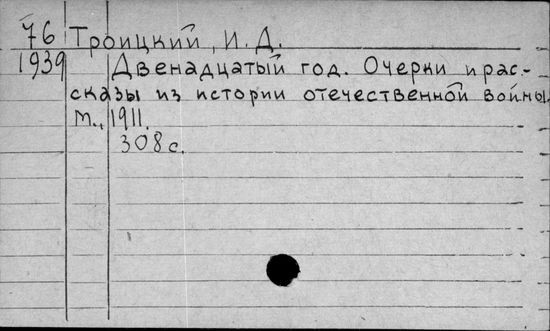 76 Троицкий, И. Д.
1939 Двенадцатый год. Очерки и рас-
сказы из истории отечественной войны.
М., 1911.
308 с.